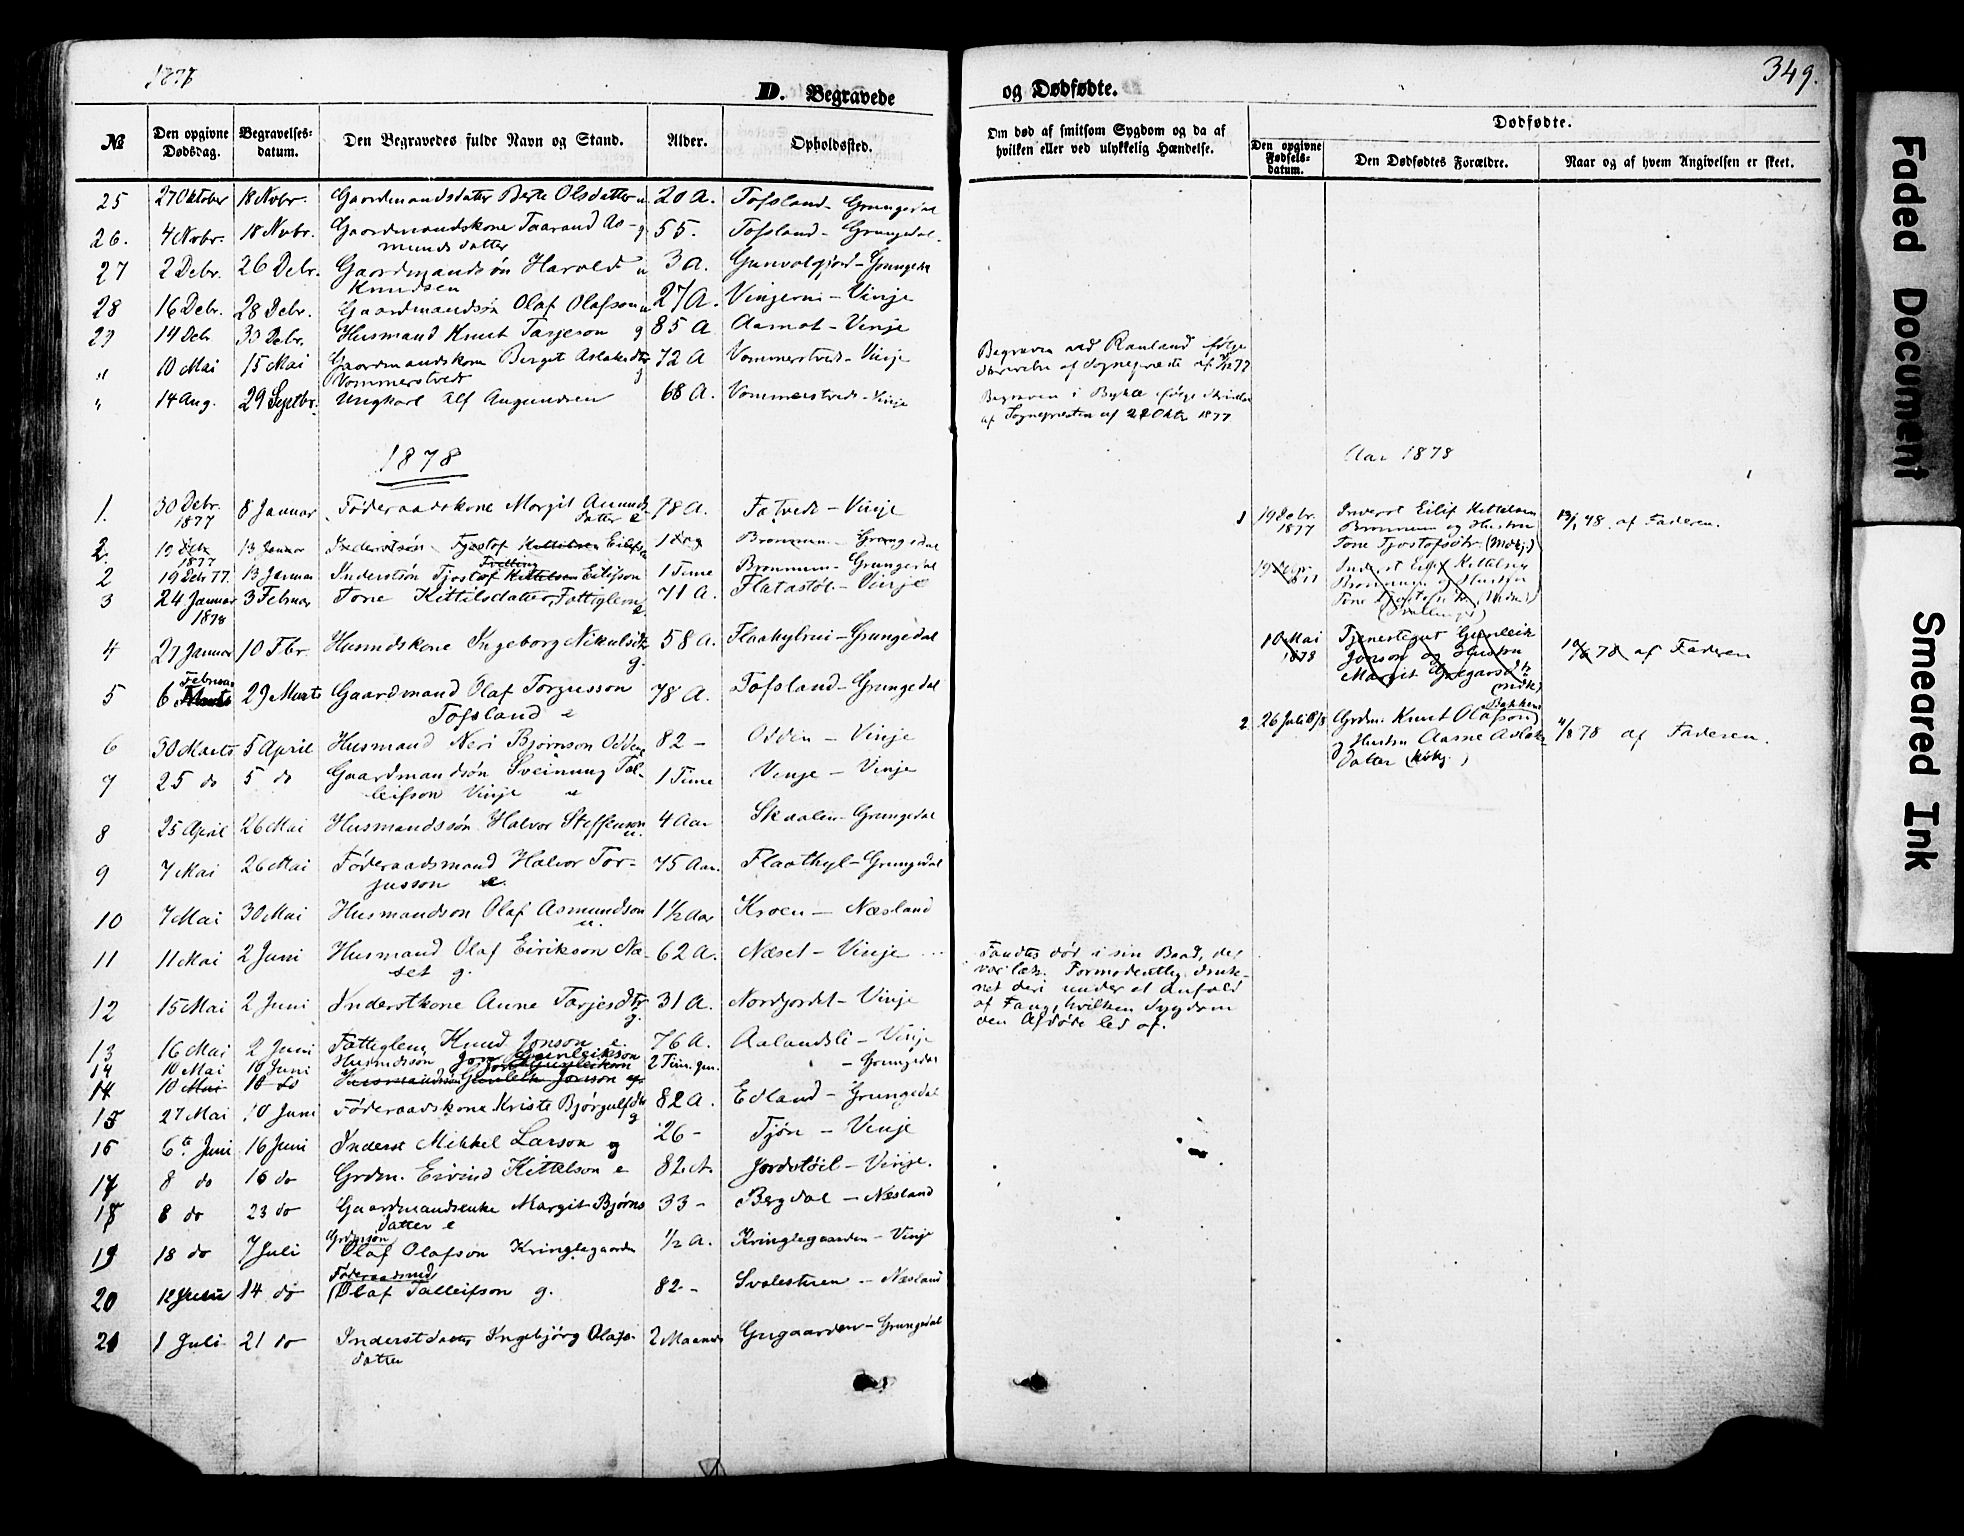 1877
349.
D. Begravede
og Dødfødte.
№
Den opgivne Dødsdag.
Begravelses-datum.
Den Begravedes fulde Navn og Stand.
Alder.
Opholdssted.
Om død af smitsom Sygdom og da af hvilken eller ved ulykkelig Hændelse.
Dødfødte.
Den opgivne Fødsels-datum.
Den Dødfødtes Forældre.
Naar og af hvem Angivelsen er skeet.
25 27 Oktober 18 Novbr. Gaardmandsdatter Olsdatter u 20 A. Tofsland - Grungedal
26. 4 Novbr. 18 Novbr. Gaardmandskone Taarand As- g 55. Tofsland - Grungedal.
mundsdatter
27 2 Debr. 26 Debr. Gaardmandsøn Harold u 3 A.
Knudsen
28 16 Debr. 28 Debr. Gaardmandsøn Olaf Olafson u 27 A. Vinje
29 14 Debr 30 Debr. Husmand Knut Tarjeson g 85 A Aamot - Vinje
" 10 Mai 15 Mai Gaardmandskone Bergit Aslaksdtr 72 A Vommerstveds - Vinje
Vommerstvedt g
Begraven ved Rauland følge
" 14 Aug. 29 Septbr. Ungkarl Alf Augundsen 68 A. Vommerstveds - Vinje
Begraven i Bykle følge
af Sognepræsten af 22 Oktr 1877
1878
Aar 1878
1. 30 Debr. 1877 8 Januar Føderaadskone Margit Amunds 78 A. Vinje
datter e
1 19 Debr. 1877 Inderst Eilif Kittelsen
Brommen og Hustru
Tone Tjostofsdtr. (Mdkj.)
af Faderen.
2. 19 Debr 1877 13 Januar Inderstsøn Tjostof Kittelsen Eilifs 1 Dag Brommen - Grungedal
2 19 Debr 77. 13 Januar Inderstsøn Tjostof Kittelsen Eilifson 1 Time Brommen - Grungedal
Tvilling
3 24 Januar 1878 3 Februar Tone Kittilsdatter, Fattiglem 71 A. Flatastøl - Vinje
e
Inderst Eilif Kittelsen
Brommen og Hustru
4 27 Januar 10 Fbr. Husmdskone Ingeborg Nikulsdtr 58 A. Grungedal
g.
10 Mai 1878 Tjenestegut Gunleik
Jonson og Hustru
Margit
78 af Faderen
5 6 Februar Marts 29 Marts Gaardmand Olaf Torgusson 78 A. Tofsland - Grungedal
Tofsland e
2 26 Juli 78 Grdm. Knut Olafson
Bakken
og Hustru Aasne Aslaks
datter
4/8 78 af Faderen.
6 30 Marts 5 April Husmand Neri Bjørnson Odden 82 - Odden - Vinje
7 25 do 5 do Gaardmandsøn Sveinung Tal- 1 Time Vinje - Vinje
leifson Vinje u
8 25 April 26 Mai Husmandssøn Halvor Steffenson 4 Aar Skaalen - Grungedal
u.
9 7 Mai 26 Mai Føderaadsmand Halvor Tor- 75 Aar. Flaathyl - Grungedal
jusson e.
10 7 Mai 30 Mai Husmandson Olaf Asmundson 1 ½ Aar Kroen - Næsland
u.
11 11 Mai 2 Juni Husmand Olaf Eirikson Næ- 62 A. Næset - Vinje
set g.
Fandtes død i sin Baad, der
var læk. Formodentlig druk-
net deri under et Anfald
af Fang, hvilken Sygdom
den Afdøde led af.
12 15 Mai 2 Juni Inderstkone Anne Tarjesdtr 31 A. Nordjordet - Vinje
g.
13 16 Mai 2 Juni Fattiglem Knud Jonson e. 76 A. Aalandsli - Vinje
14 10 Mai 10 Juni Husmdssøn Jon Gunleikson 2 Tim. - Grungedal
14 10 Mai 10 do Husmandsøn Gunleik Jonson
15 27 Mai 10 Juni Føderaadskone Kristi Bjørgulfsdtr 82 A. Edland - Grungedal
g
16 6te Juni 16 Juni Inderst Mikkel Larson g 26 - Tjøn - Vinje
17 8 do 16 do Grdm. Eivind Kittelson e 82 A. Jordstøil - Vinje.
18 8 do 23 do Gaardmandsenke Margit Bjørns 33 - Bergdal - Næsland
datter e
19 18 do 7 Juli Grdmsøn Olaf Olafson Kringlegaarden ½ A. Kringlegaarden - Vinje
20 12 Juni 14 do Føderaadsmd Olaf Talleifson g. 82 - Næsland
21 1 Juli 21 do Inderstdatter Ingebjørg Olafs- 2 Maaneder Grungedal
datter
Faded Document
Smeared Ink